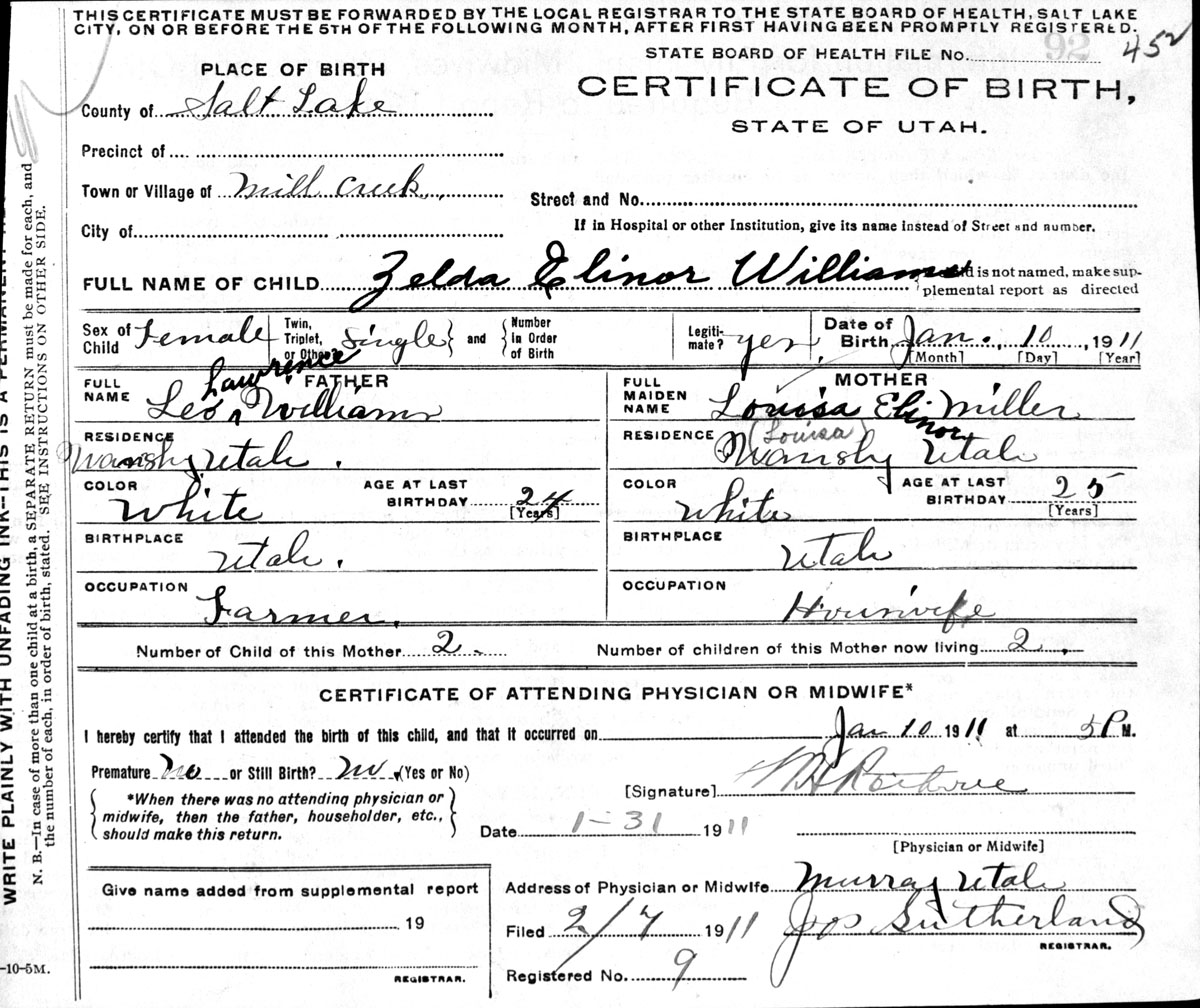 THIS CERTIFICATE MUST BE FORWARDED BY THE LOCAL REGISTRAR TO THE STATE BOARD OF HEALTH, SALT LAKE
CITY, ON OR BEFORE THE 5TH OF THE FOLLOWING MONTH, AFTER FIRST HAVING BEEN PROMPTLY REGISTERED.
STATE BOARD OF HEALTH FILE No. 92 452
PLACE OF BIRTH
CERTIFICATE OF BIRTH,
STATE OF UTAH.
County of Salt Lake
Precinct of
Town or Village of Mill Creek
Street and No.
City of
If in Hospital or other Institution, give its name instead of Street and number.
FULL NAME OF CHILD Zelda Elinor Williams is not named, make sup-
plemental report as directed
Sex of Child Female
Twin, Triplet, or Other? Single and Number in Order of Birth
Legiti-mate? yes
Date of Birth Jan. 10, 1911
[Month] [Day] [Year]
FATHER
FULL NAME Leo Lawrence Williams
RESIDENCE Wanship Utah.
COLOR White AGE AT LAST BIRTHDAY 24 [Years]
BIRTHPLACE Utah.
OCCUPATION Farmer.
MOTHER
FULL MAIDEN NAME Louisa Elinor Miller
(Louisa)
RESIDENCE Wanship Utah
COLOR White AGE AT LAST BIRTHDAY 25 [Years]
BIRTHPLACE Utah
OCCUPATION Housewife
Number of Child of this Mother 2. Number of children of this Mother now living 2.
CERTIFICATE OF ATTENDING PHYSICIAN OR MIDWIFE*
I hereby certify that I attended the birth of this child, and that it occurred on Jan 10 1911 at 5 P M.
Premature No or Still Birth? No. (Yes or No)
[Signature]
*When there was no attending physician or
midwife, then the father, householder, etc.,
should make this return.
Date 1-31 1911
[Physician or Midwife]
Give name added from supplemental report
19
REGISTRAR.
Address of Physician or Midwife Murray Utah
Filed 2/7 1911 Jos Sutherland
REGISTRAR.
Registered No. 9
-10-5M.
WRITE PLAINLY WITH UNFADING INK—THIS IS A PERMANENT
N. B.—In case of more than one child at a birth, a SEPARATE RETURN must be made for each, and
the number of each, in order of birth, stated. SEE INSTRUCTIONS ON OTHER SIDE.